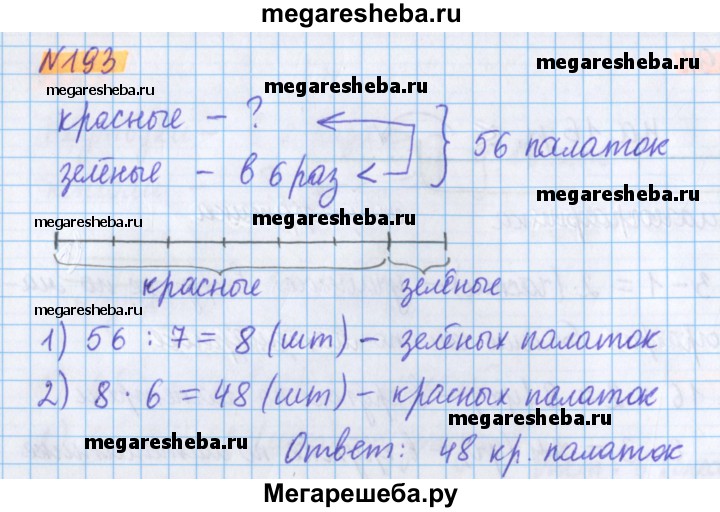 megaresheba.ru
N193
megaresheba.ru
megaresheba.ru
красные - ?
зелёные - в 6 раз <
56 палаток
megaresheba.ru
megaresheba.ru
красные зелёные
megaresheba.ru
megaresheba.ru
1) 56 : 7 = 8 (шт) - зелёных палаток
2) 8 · 6 = 48 (шт) - красных палаток
megaresheba.ru
megaresheba.ru
Ответ: 48 кр. палаток
Мегарешеба.ру